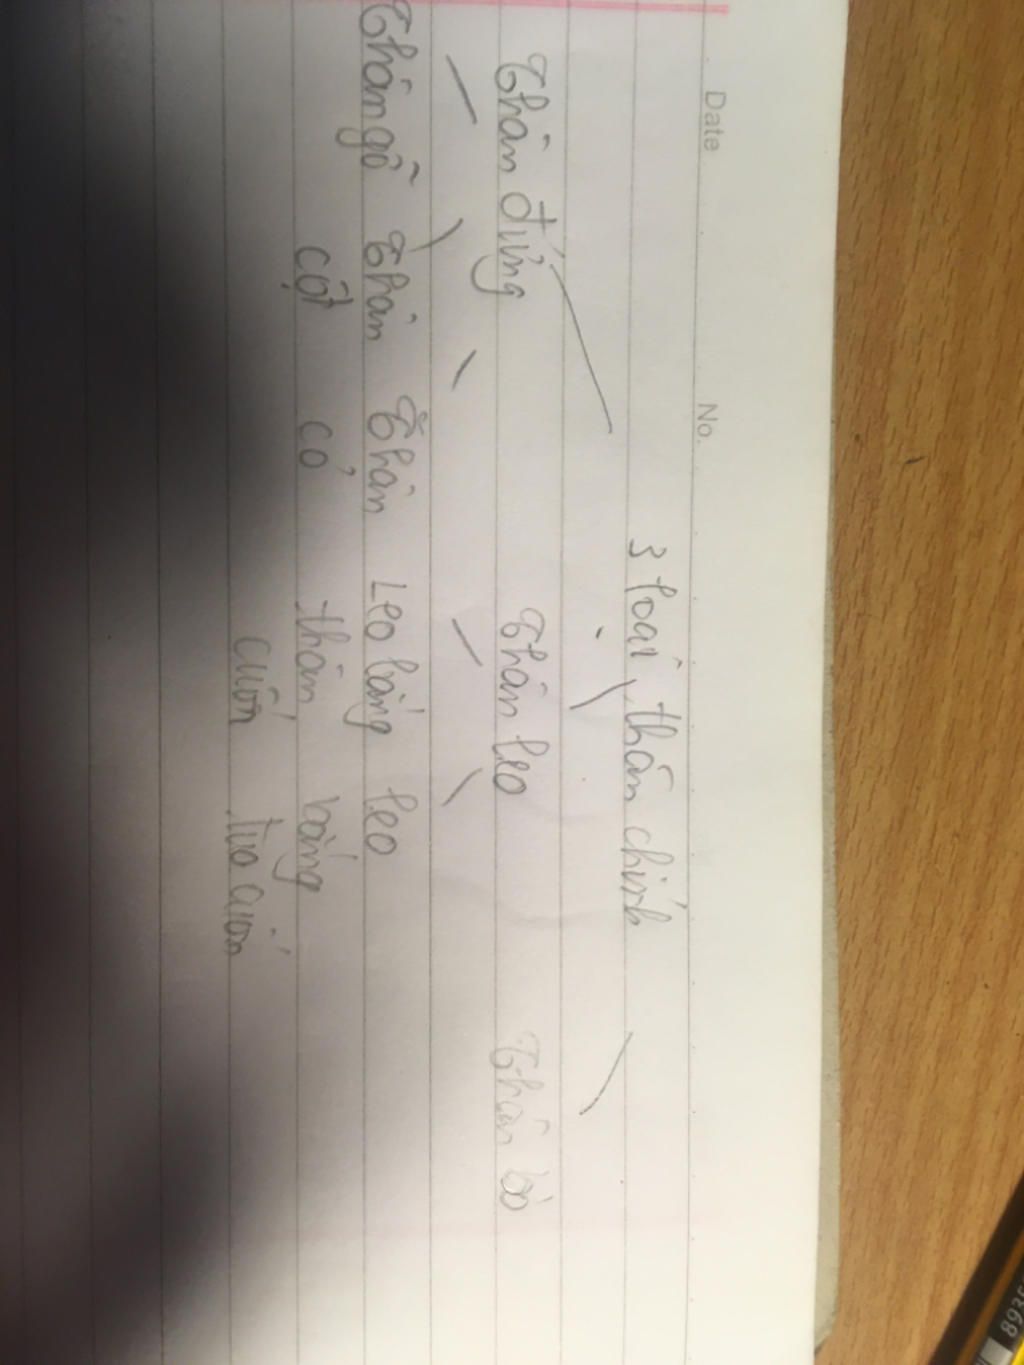 Date No.
3 loại thân chính
Thân đứng Thân leo Thân bò
Thân gỗ Thân Thân Leo bằng leo
cột cỏ thân bằng
cuốn tua cuốn
893